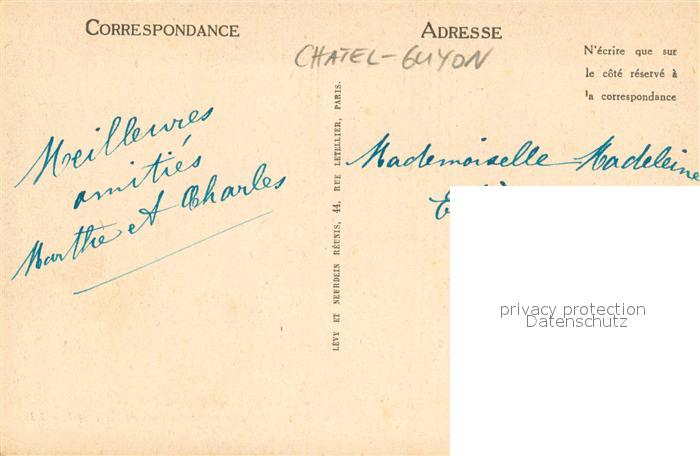 CORRESPONDANCE
ADRESSE
CHATEL-GUYON
N'écrire que sur
le côté réservé à
la correspondance
Meilleures
amitiés
Marthe et Charles
LÉVY ET NEURDEIN RÉUNIS, 44, RUE LETELLIER, PARIS.
Mademoiselle Madeleine
privacy protection
Datenschutz